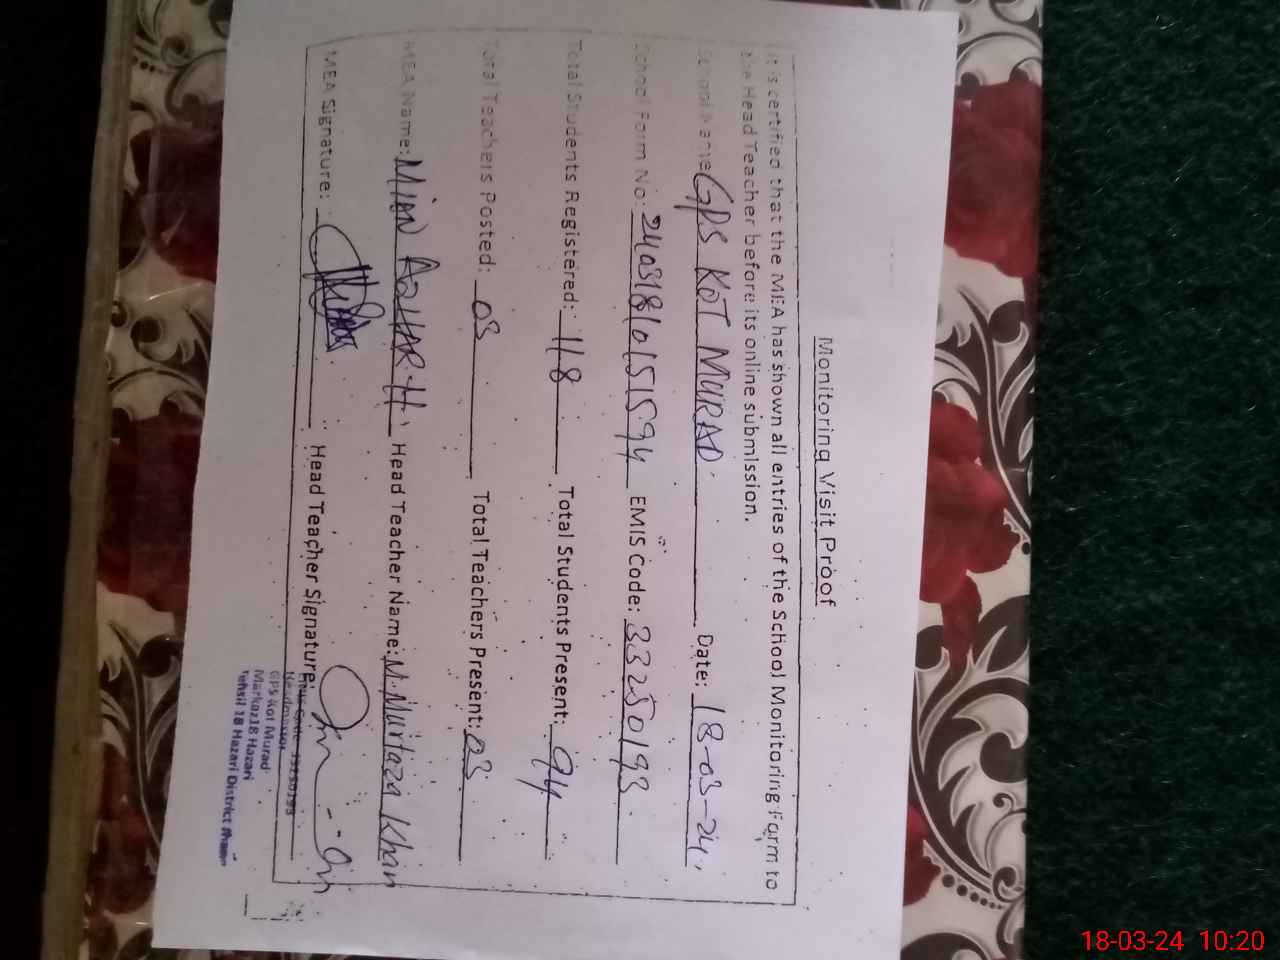 Monitoring Visit Proof
It is certified that the MEA has shown all entries of the School Monitoring Form to
the Head Teacher before its online submission.
School Name GPS KOT MURAD Date: 18-03-24
School Form No: 24031810151594 EMIS Code: 33250193
Total Students Registered: 118 Total Students Present: 94
Total Teachers Posted: 03 Total Teachers Present: 03
MEA Name: MIAN AZHAR.H Head Teacher Name: M. Murtaza Khan
MEA Signature: Head Teacher Signature:
Headmaster
GPS Kot Murad
Markaz 18 Hazari
Tehsil 18 Hazari District Jhang
18-03-24 10:20